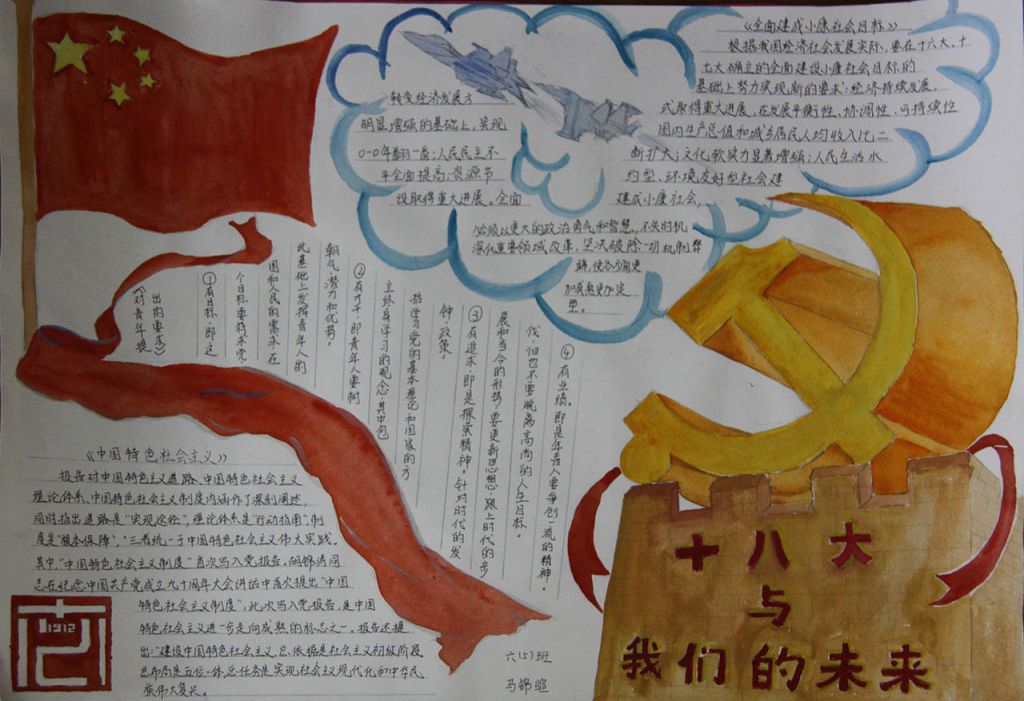 《全面建成小康社会目标》
根据我国经济社会发展实际,要在十六大、十
七大确立的全面建设小康社会目标的
基础上努力实现新的要求:经济持续发展,
转变经济发展方
式取得重大进展,在发展平衡性、协调性、可持续性
明显增强的基础上,实现
国内生产总值和城乡居民人均收入比二
0一0年翻一番;人民民主不
断扩大;文化软实力显著增强;人民生活水
平全面提高;资源节
约型、环境友好型社会建
设取得重大进展。全面
建成小康社会,
必须以更大的政治勇气和智慧,不失时机
深化重要领域改革,坚决破除一切
《对青年提
出的要求》
①有目标,即这
个目标要符合党
国和人民的需求,在
此基础上发挥青年人的
朝气潜力和优势。
②有才干,即青年人要树
立终身学习的观念,其中包
括学习党的基本理论和国家的方
针政策。
③有追求,即是探索精神。针对时代的发
展和当今的形势,要更新思想,跟上时代的步
伐,但也不要脱离高尚的人生目标。
④有业绩。即是年青人要争创一流的精神。
《中国特色社会主义》
报告对中国特色社会主义道路、中国特色社会主义
理论体系、中国特色社会主义制度内涵作了深刻阐述,
同时指出道路是“实现途径”,理论体系是“行动指南”,制
度是“根本保障”,“三者统一于中国特色社会主义伟大实践”。
其中,“中国特色社会主义制度”首次写入党报告。胡锦涛同
志在纪念中国共产党成立九十周年大会讲话中首次提出“中国
特色社会主义制度”,此次写入党报告,是中国
特色社会主义进一步走向成熟的标志之一。报告还提
出:“建设中国特色社会主义,总依据是社会主义初级阶段
总布局是五位一体,总任务是实现社会主义现代化和中华民
族伟大复兴。
1912
六(5)班
马锦暄
十八大
与
我们的未来